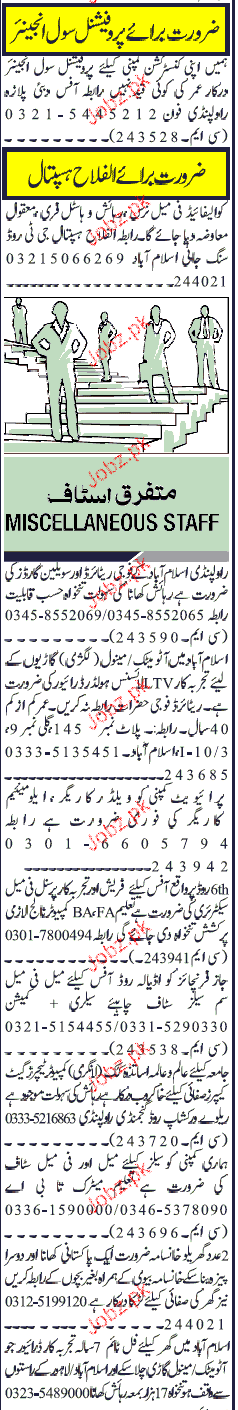 ضرورت برائے پروفیشنل سول انجینئر
ہمیں اپنی کنسٹرکشن کمپنی کیلئے پروفیشنل سول انجینئر
درکار عمر کی کوئی قید نہیں رابطہ آفس دبئی پلازہ
راولپنڈی فون 0321-5445212
(سی ایم۔243528)
ضرورت برائے الفلاح ہسپتال
کوالیفائیڈ فی میل نرس، رہائش و ہاسٹل فری، معقول
معاوضہ دیا جائے گا۔ رابطہ الفلاح ہسپتال جی ٹی روڈ
سنگ جانی اسلام آباد 03215066269
244021
متفرق اسٹاف
MISCELLANEOUS STAFF
راولپنڈی اسلام آباد کیلئے فوجی ریٹائرڈ اور سویلین گارڈز کی
ضرورت ہے رہائش کھانا کی سہولت تنخواہ حسب قابلیت
رابطہ 0345-8552069/0345-8552065
(سی ایم۔243590)
اسلام آباد میں آٹومیٹک/مینول (لگژری) گاڑیوں کے
لئے تجربہ کار LTV لائسنس ہولڈر ڈرائیور کی ضرورت
ہے۔ ریٹائرڈ فوجی حضرات رابطہ نہ کریں۔ عمر کم از کم
40 سال۔ رابطہ: پلاٹ نمبر 145 گلی نمبر 9،
I-10/3، اسلام آباد۔ 0333-5135451
243685
پرائیویٹ کمپنی کو ویلڈر کاریگر، ایلومینیم
کاریگر کی فوری ضرورت ہے رابطہ
0301-6605794
243942
6th روڈ پر واقع آفس کیلئے فریش اور تجربہ کار پرسنل فی میل
سیکرٹری کی ضرورت ہے تعلیم BA،FA کمپیوٹر نالج لازمی
پرکشش تنخواہ دی جائے گی رابطہ 0301-7800494
(سی ایم۔243941)
جاز فرنچائز کو اڈیالہ روڈ آفس کیلئے میل فی میل
سم سیلز سٹاف چاہئے سیلری + کمیشن
0321-5154455/0331-5290330
(سی ایم۔243538)
جامعہ کیلئے عالم و عالمہ اساتذہ کک (لانگری) کمپیوٹر ٹیچرز گیٹ
کیپرز صفائی کیلئے خاکروب درکار ہے رہائش کی سہولت موجود ہے
ریلوے ورکشاپ روڈ گنجمنڈی راولپنڈی 0333-5216863
(سی ایم۔243720)
ہماری کمپنی کو سیلز کیلئے میل اور فی میل سٹاف
کی ضرورت ہے تعلیم میٹرک تا بی اے
0336-1590000/0346-5378090
(سی ایم۔243696)
2 عدد گھریلو خانسامہ ضرورت ایک پاکستانی کھانا اور دوسرا
پیزہ بنا سکے خانسامہ بیوی کے ہمراہ بغیر بچوں کے رابطہ کریں
نیز گھر کی صفائی کیلئے لڑکا درکار ہے 0312-5199120
244021
اسلام آباد میں گھر کیلئے فل ٹائم 7 سالہ تجربہ کار ڈرائیور جو
آٹومیٹک/مینول گاڑی چلا سکے اور اسلام آباد/لاہور کے راستوں
سے واقف ہو تنخواہ 17 ہزار بمعہ رہائش کھانا 0323-5489000